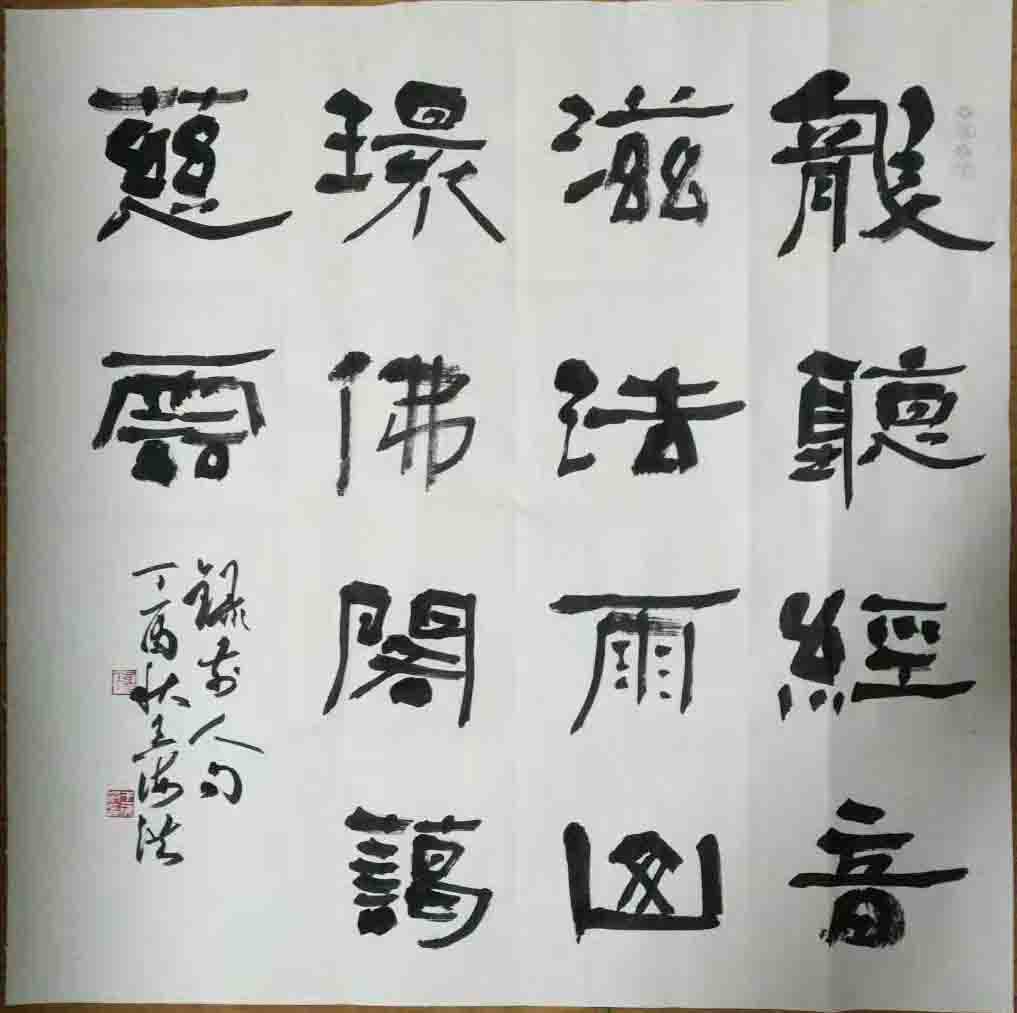 龍聽經音
滋法雨山
環佛閣藹
慈雲
錄前人句
丁酉秋王海洪